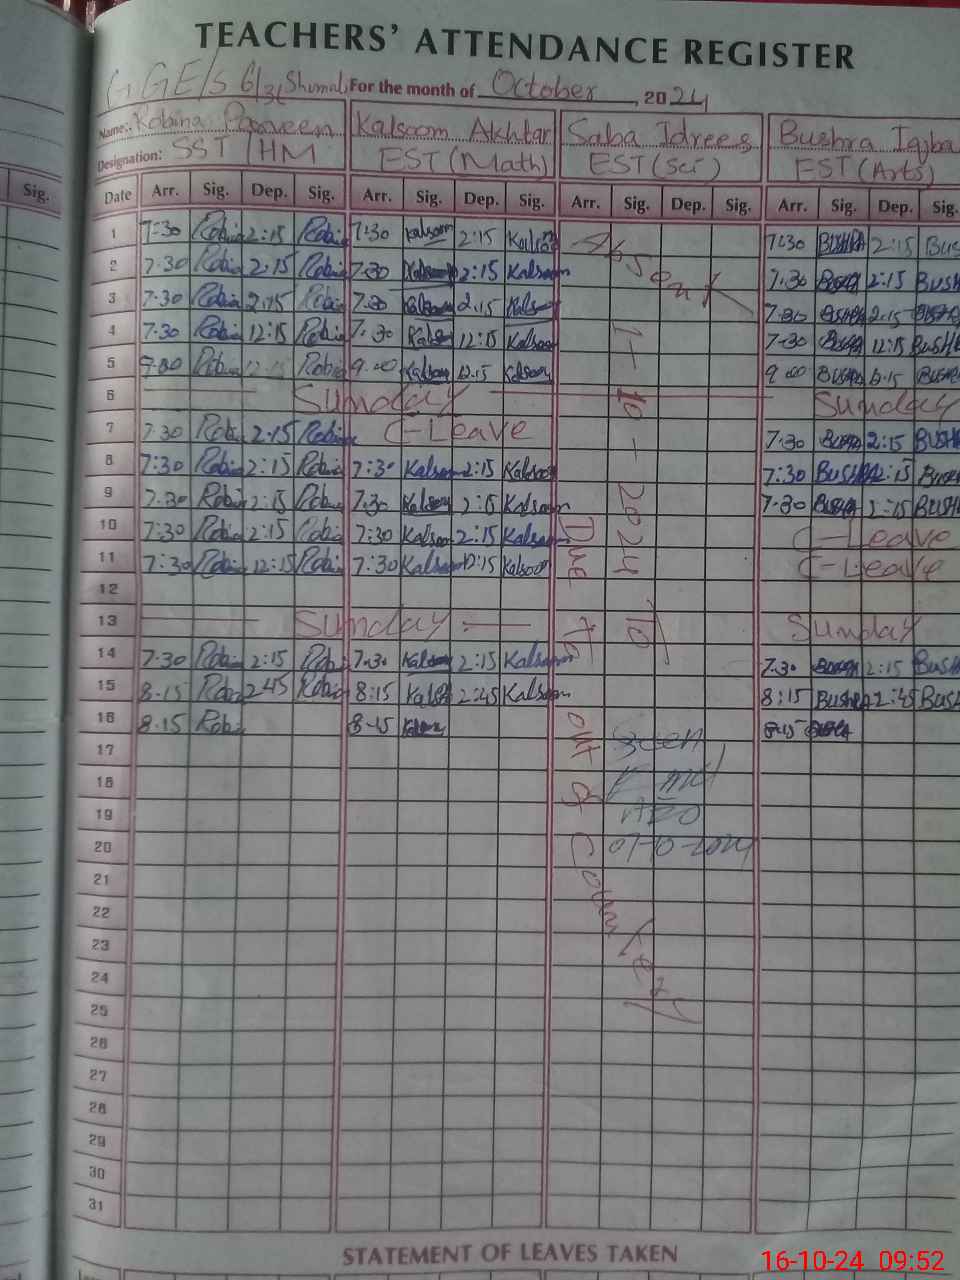 TEACHERS' ATTENDANCE REGISTER
GGE/S 6/3L Shumali For the month of October, 2024
Name: Robina Parveen Kalsoom Akhtar Saba Idrees Bushra Iqba
Designation: SST/HM EST (Math) EST (Sci) EST (Arts)
Sig. Date Arr. Sig. Dep. Sig. Arr. Sig. Dep. Sig. Arr. Sig. Dep. Sig. Arr. Sig. Dep. Sig.
1 7:30 Robin 2:15 Robin 7:30 Kalsoom 2:15 Kalsoo Absent 7:30 BUSHRA 2:15 Bus
2 7.30 Robin 2:15 Robin 7.30 Kalsoom 2:15 Kalsoom 7.30 Bushra 2:15 BUSH
3 7.30 Robin 2:15 Robin 7.30 Kalsoom 2.15 Kalsoo 7.30 BUSHRA 2:15 BUSHR
4 7:30 Robin 12:15 Robin 7.30 Kalso 12:15 Kalsoo 1- 7.30 BUSHRA 12:15 BUSHR
5 9.00 Robin 12:15 Robin 9.00 Kalsoom 12.15 Kalsoom 9.00 BUSHRA 12.15 BUSHR
6 Sunday 10 Sunday
7 7:30 Robi 2:15 Robin C-Leave - 7:30 Bushra 2:15 BUSHR
8 7:30 Robin 2:15 Robin 7:30 Kalsoom 2:15 Kalsoo 7:30 BUSHRA 2:15 Bush
9 7.30 Robin 2:15 Robin 7.30 Kalsoom 2:15 Kalsoom 2024 7.30 BUSHRA 2:15 BUSH
10 7:30 Robin 2:15 Robin 7:30 Kalsoom 2:15 Kalsoom Due C-Leave
11 7:30 Robin 12:15 Robin 7:30 Kalsoom 12:15 Kalsoom C-Leave
12
13 Sunday to To Sunday
14 7.30 Robin 2:15 Rob 7.30 Kalsoom 2:15 Kalsoom 7.30 Bushra 2:15 BUSH
15 8.15 Robi 2:45 Robin 8:15 Kalso 2:45 Kalsoom 8:15 BUSHRA 2:45 BUSH
16 8.15 Robi 8.45 Kalsoom out 8.15 BUSHRA
17 Seen
18 of
19 AEO
20 07-10-2024
21 Country
22
23
24
25
26
27
28
29
30
31
STATEMENT OF LEAVES TAKEN
16-10-24 09:52